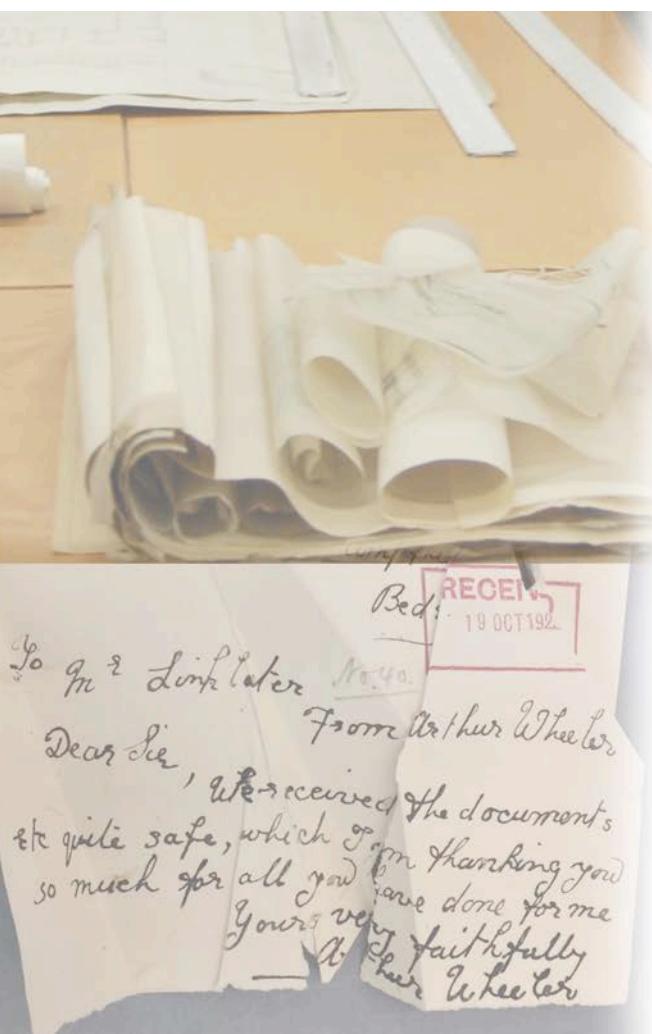 Beds.
RECEIV
19 OCT 192
To Mr Linklater
No. 40.
From Arthur Wheeler
Dear Sir,
We received the documents
etc quite safe, which I am thanking you
so much for all you have done for me
Yours very faithfully
Arthur Wheeler